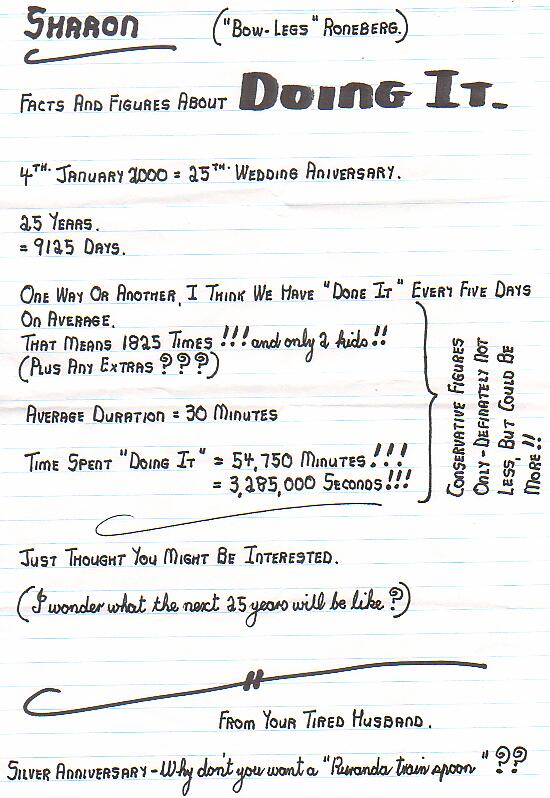 SHARON ("BOW-LEGS" RONEBERG.)
FACTS AND FIGURES ABOUT DOING IT.
4TH. JANUARY 2000 = 25TH. WEDDING ANIVERSARY.
25 YEARS.
= 9125 DAYS.
ONE WAY OR ANOTHER, I THINK WE HAVE "DONE IT" EVERY FIVE DAYS
ON AVERAGE.
THAT MEANS 1825 TIMES !!! and only 2 kids!!
(PLUS ANY EXTRAS ???)
AVERAGE DURATION = 30 MINUTES
TIME SPENT "DOING IT" = 54,750 MINUTES!!!
= 3,285,000 SECONDS!!!
CONSERVATIVE FIGURES
ONLY - DEFINATELY NOT
LESS, BUT COULD BE
MORE!!
JUST THOUGHT YOU MIGHT BE INTERESTED.
(I wonder what the next 25 years will be like?)
FROM YOUR TIRED HUSBAND.
SILVER ANNIVERSARY - Why don't you want a "Ruwanda train spoon" ??